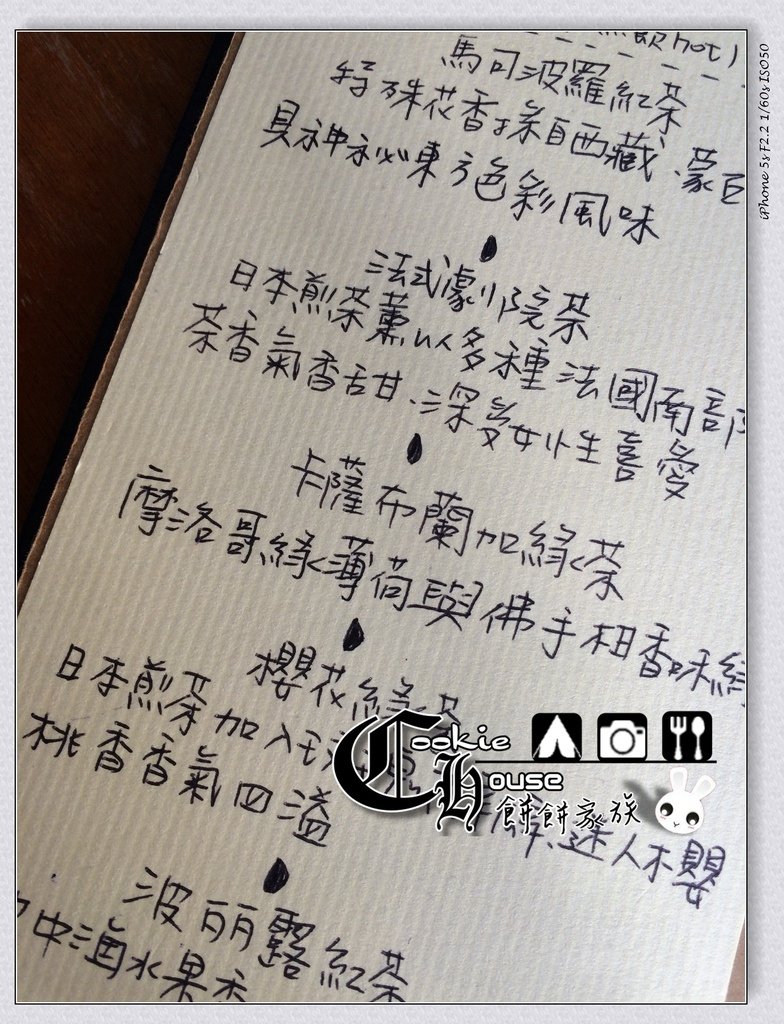 飲hot)
馬可波羅紅茶
特殊花香,採自西藏、蒙
具神祕東方色彩風味
法式劇院茶
日本煎茶薰以多種法國南部
茶香氣香甜、深受女性喜愛
卡薩布蘭加綠茶
摩洛哥綠薄荷與佛手柑香味
櫻花綠茶
日本煎茶加入
迷人櫻
桃香香氣四溢
波麗露紅茶
水果香
Cookie
House
餅餅家族
iPhone 5s F2.2 1/60s ISO50